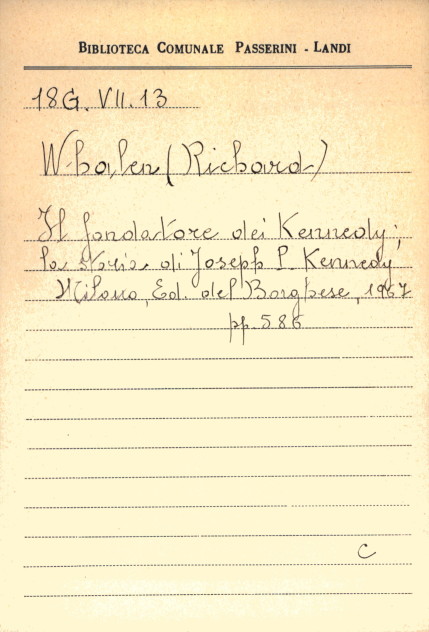 BIBLIOTECA COMUNALE PASSERINI - LANDI
18G. VII. 13
Whalen (Richard)
Il fondatore dei Kennedy;
la storia di Joseph P. Kennedy
Milano, Ed. del Borghese, 1967
pp. 586
C